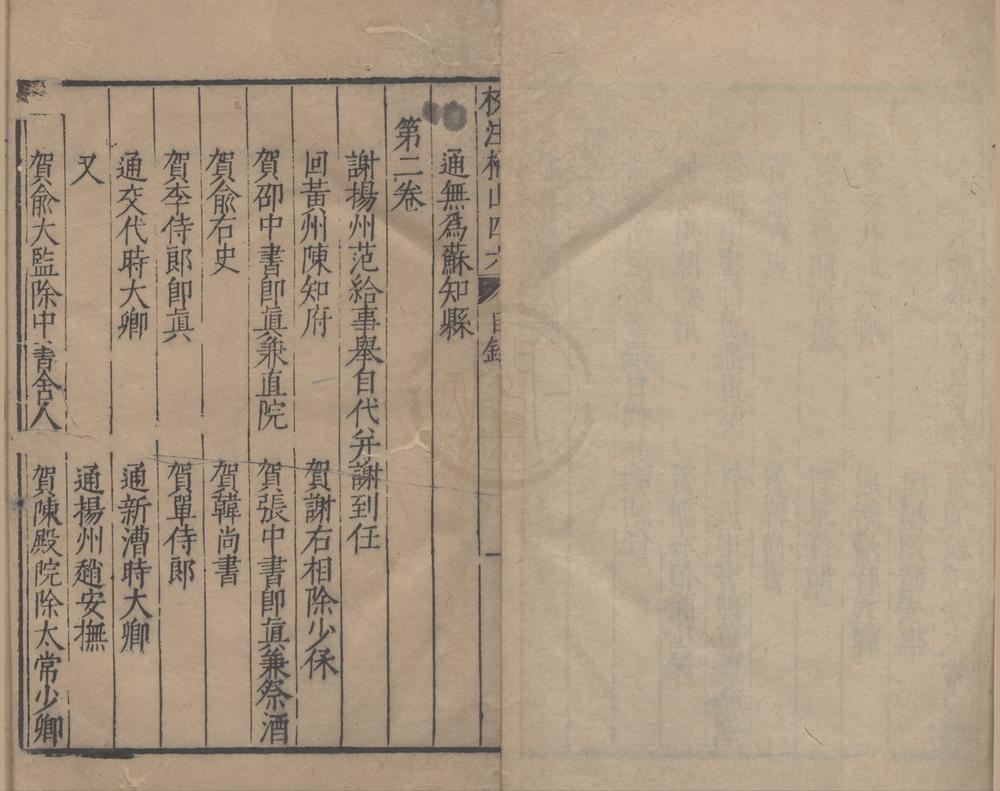 校注橘山四六 目錄 一
通無為蘇知縣
第二卷
謝揚州范給事舉自代并謝到任
回黃州陳知府 賀謝右相除少保
賀邵中書即眞兼直院 賀張中書即眞兼祭酒
賀俞右史 賀韓尚書
賀李侍郎即眞 賀單侍郎
通交代時大卿 通新漕時大卿
又 通揚州趙安撫
賀俞大監除中書舍人 賀陳殿院除太常少卿